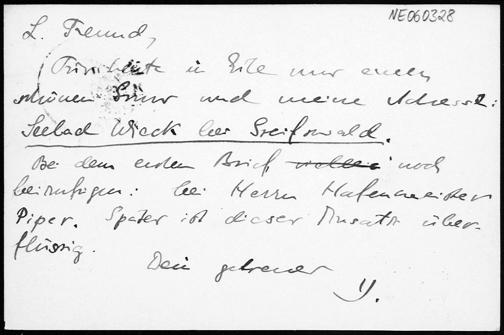 NE060328
L. Freund,
Für heute in Eile nur einen
schönen Gruss und meine Adresse:
Seebad Wieck bei Greifswald.
Bei dem ersten Brief noch
beizufügen: bei Herrn Hafenmeister
Piper. Später ist dieser Zusatz über-
flüssig.
Dein getreuer
Y.